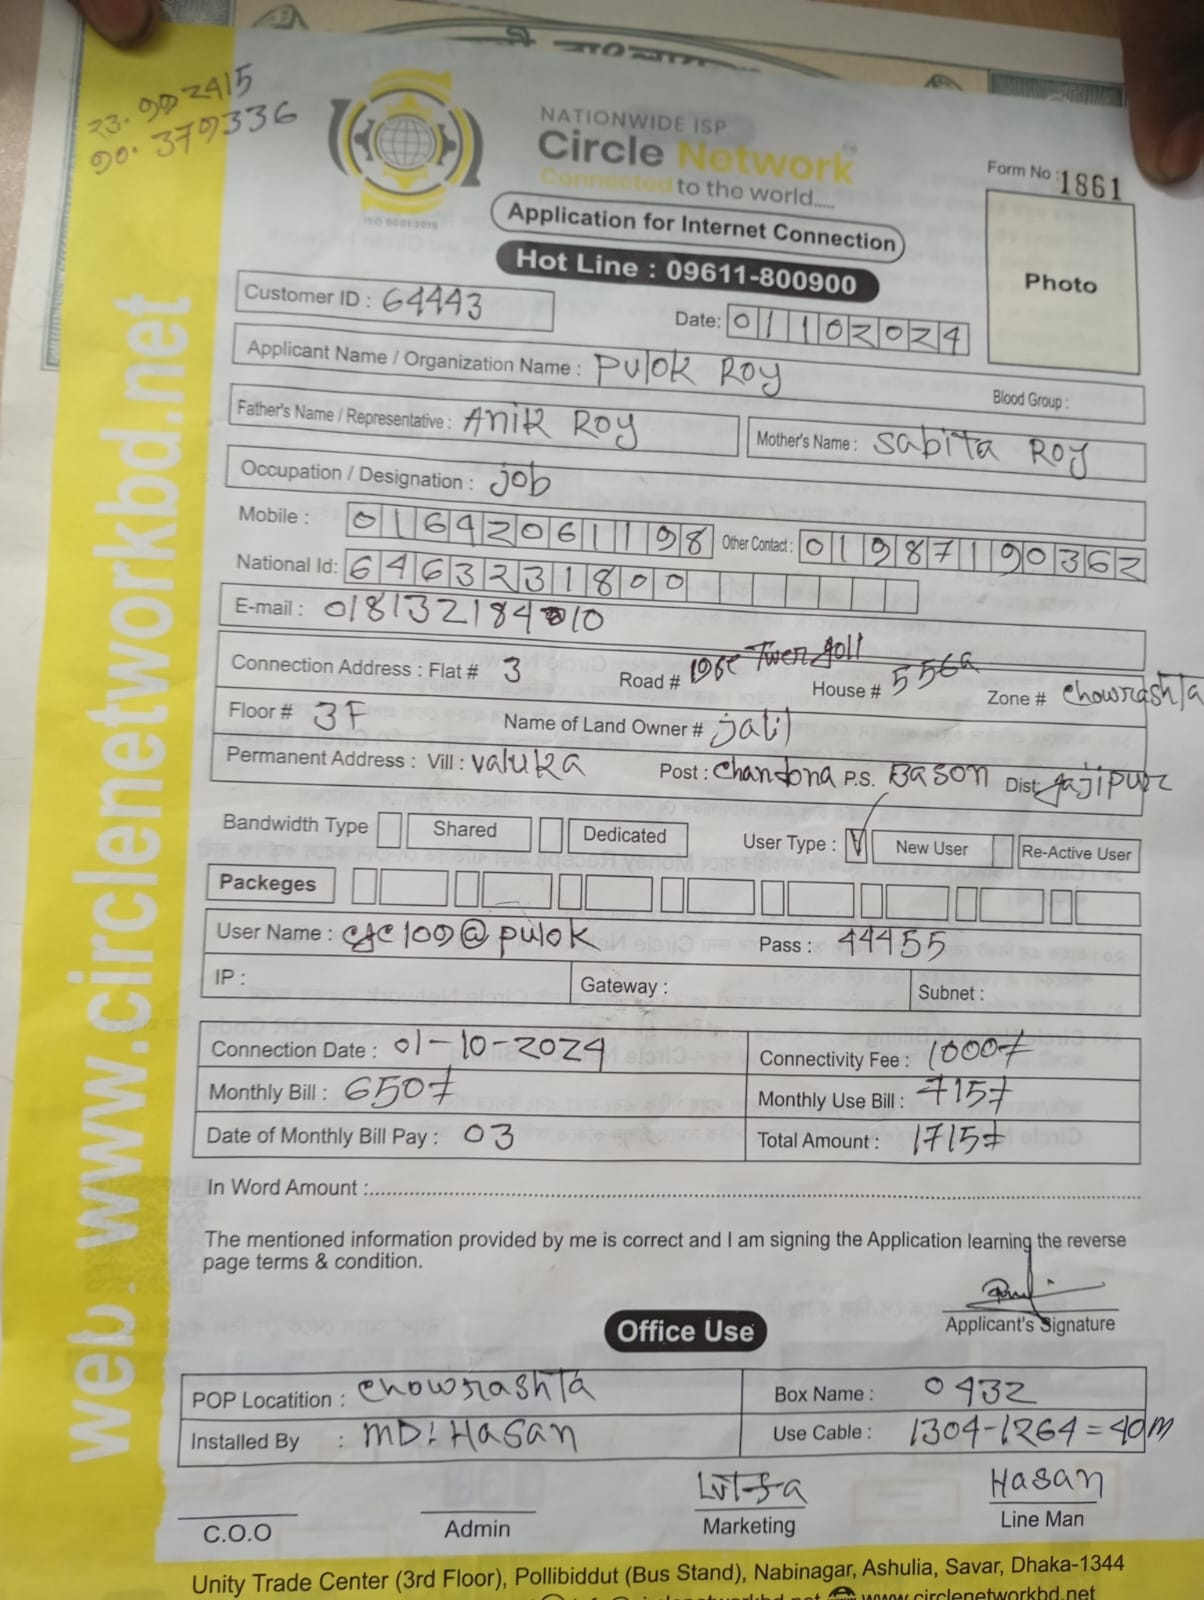 NATIONWIDE ISP
Circle Network
Connected to the world.....
ISO 9001:2015
Form No : 1861
Application for Internet Connection
Hot Line : 09611-800900
Photo
Customer ID : 64443
Date: 01102024
Applicant Name / Organization Name : Pulok Roy
Blood Group :
Father's Name / Representative : Anik Roy
Mother's Name : Sabita Roy
Occupation / Designation : job
Mobile : 01642061198 Other Contact : 01987190362
National Id: 6463231800
E-mail :
Connection Address : Flat # 3 Road # House # 556a Zone # chowrashta
Floor # 3F Name of Land Owner # jalil
Permanent Address : Vill : valuka Post : chandona P.S. Bason Dist: gajipur
Bandwidth Type Shared Dedicated User Type : New User Re-Active User
Packeges
User Name : Pass : 44455
IP : Gateway : Subnet :
Connection Date : 01-10-2024 Connectivity Fee : 1000/-
Monthly Bill : 650/- Monthly Use Bill : 715/-
Date of Monthly Bill Pay : 03 Total Amount : 1715/-
In Word Amount :
The mentioned information provided by me is correct and I am signing the Application learning the reverse
page terms & condition.
Applicant's Signature
Office Use
POP Locatition : chowrashta Box Name : 0432
Installed By : MD: Hasan Use Cable : 1304-1264=40m
Lutfa Hasan
C.O.O Admin Marketing Line Man
Unity Trade Center (3rd Floor), Pollibiddut (Bus Stand), Nabinagar, Ashulia, Savar, Dhaka-1344
www.circlenetworkbd.net
web : www.circlenetworkbd.net